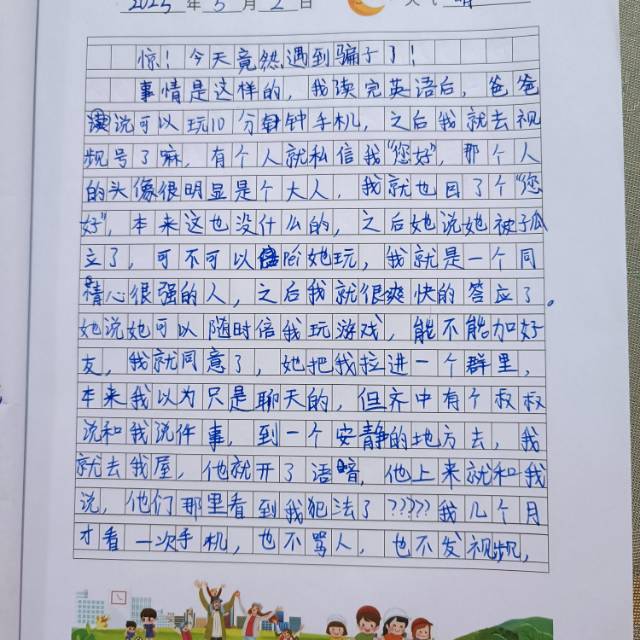 2025 年 5 月 2 日 天气 晴
惊！今天竟然遇到骗子了！
事情是这样的，我读完英语后，爸爸
说可以玩10分钟手机，之后我就去视
频号了嘛，有个人就私信我“您好”，那个人
的头像很明显是个大人，我就也回了个“您
好”，本来这也没什么的，之后她说她被孤
立了，可不可以péi她玩，我就是一个同
情心很强的人，之后我就很爽快的答应了。
她说她可以随时信我玩游戏，能不能加好
友，我就同意了，她把我拉进一个群里，
本来我以为只是聊天的，但齐中有个叔叔
说和我说件事，到一个安静的地方去，我
就去我屋，他就开了语暗，他上来就和我
说，他们那里看到我犯法了?????我几个月
才看一次手机，也不骂人，也不发视频，